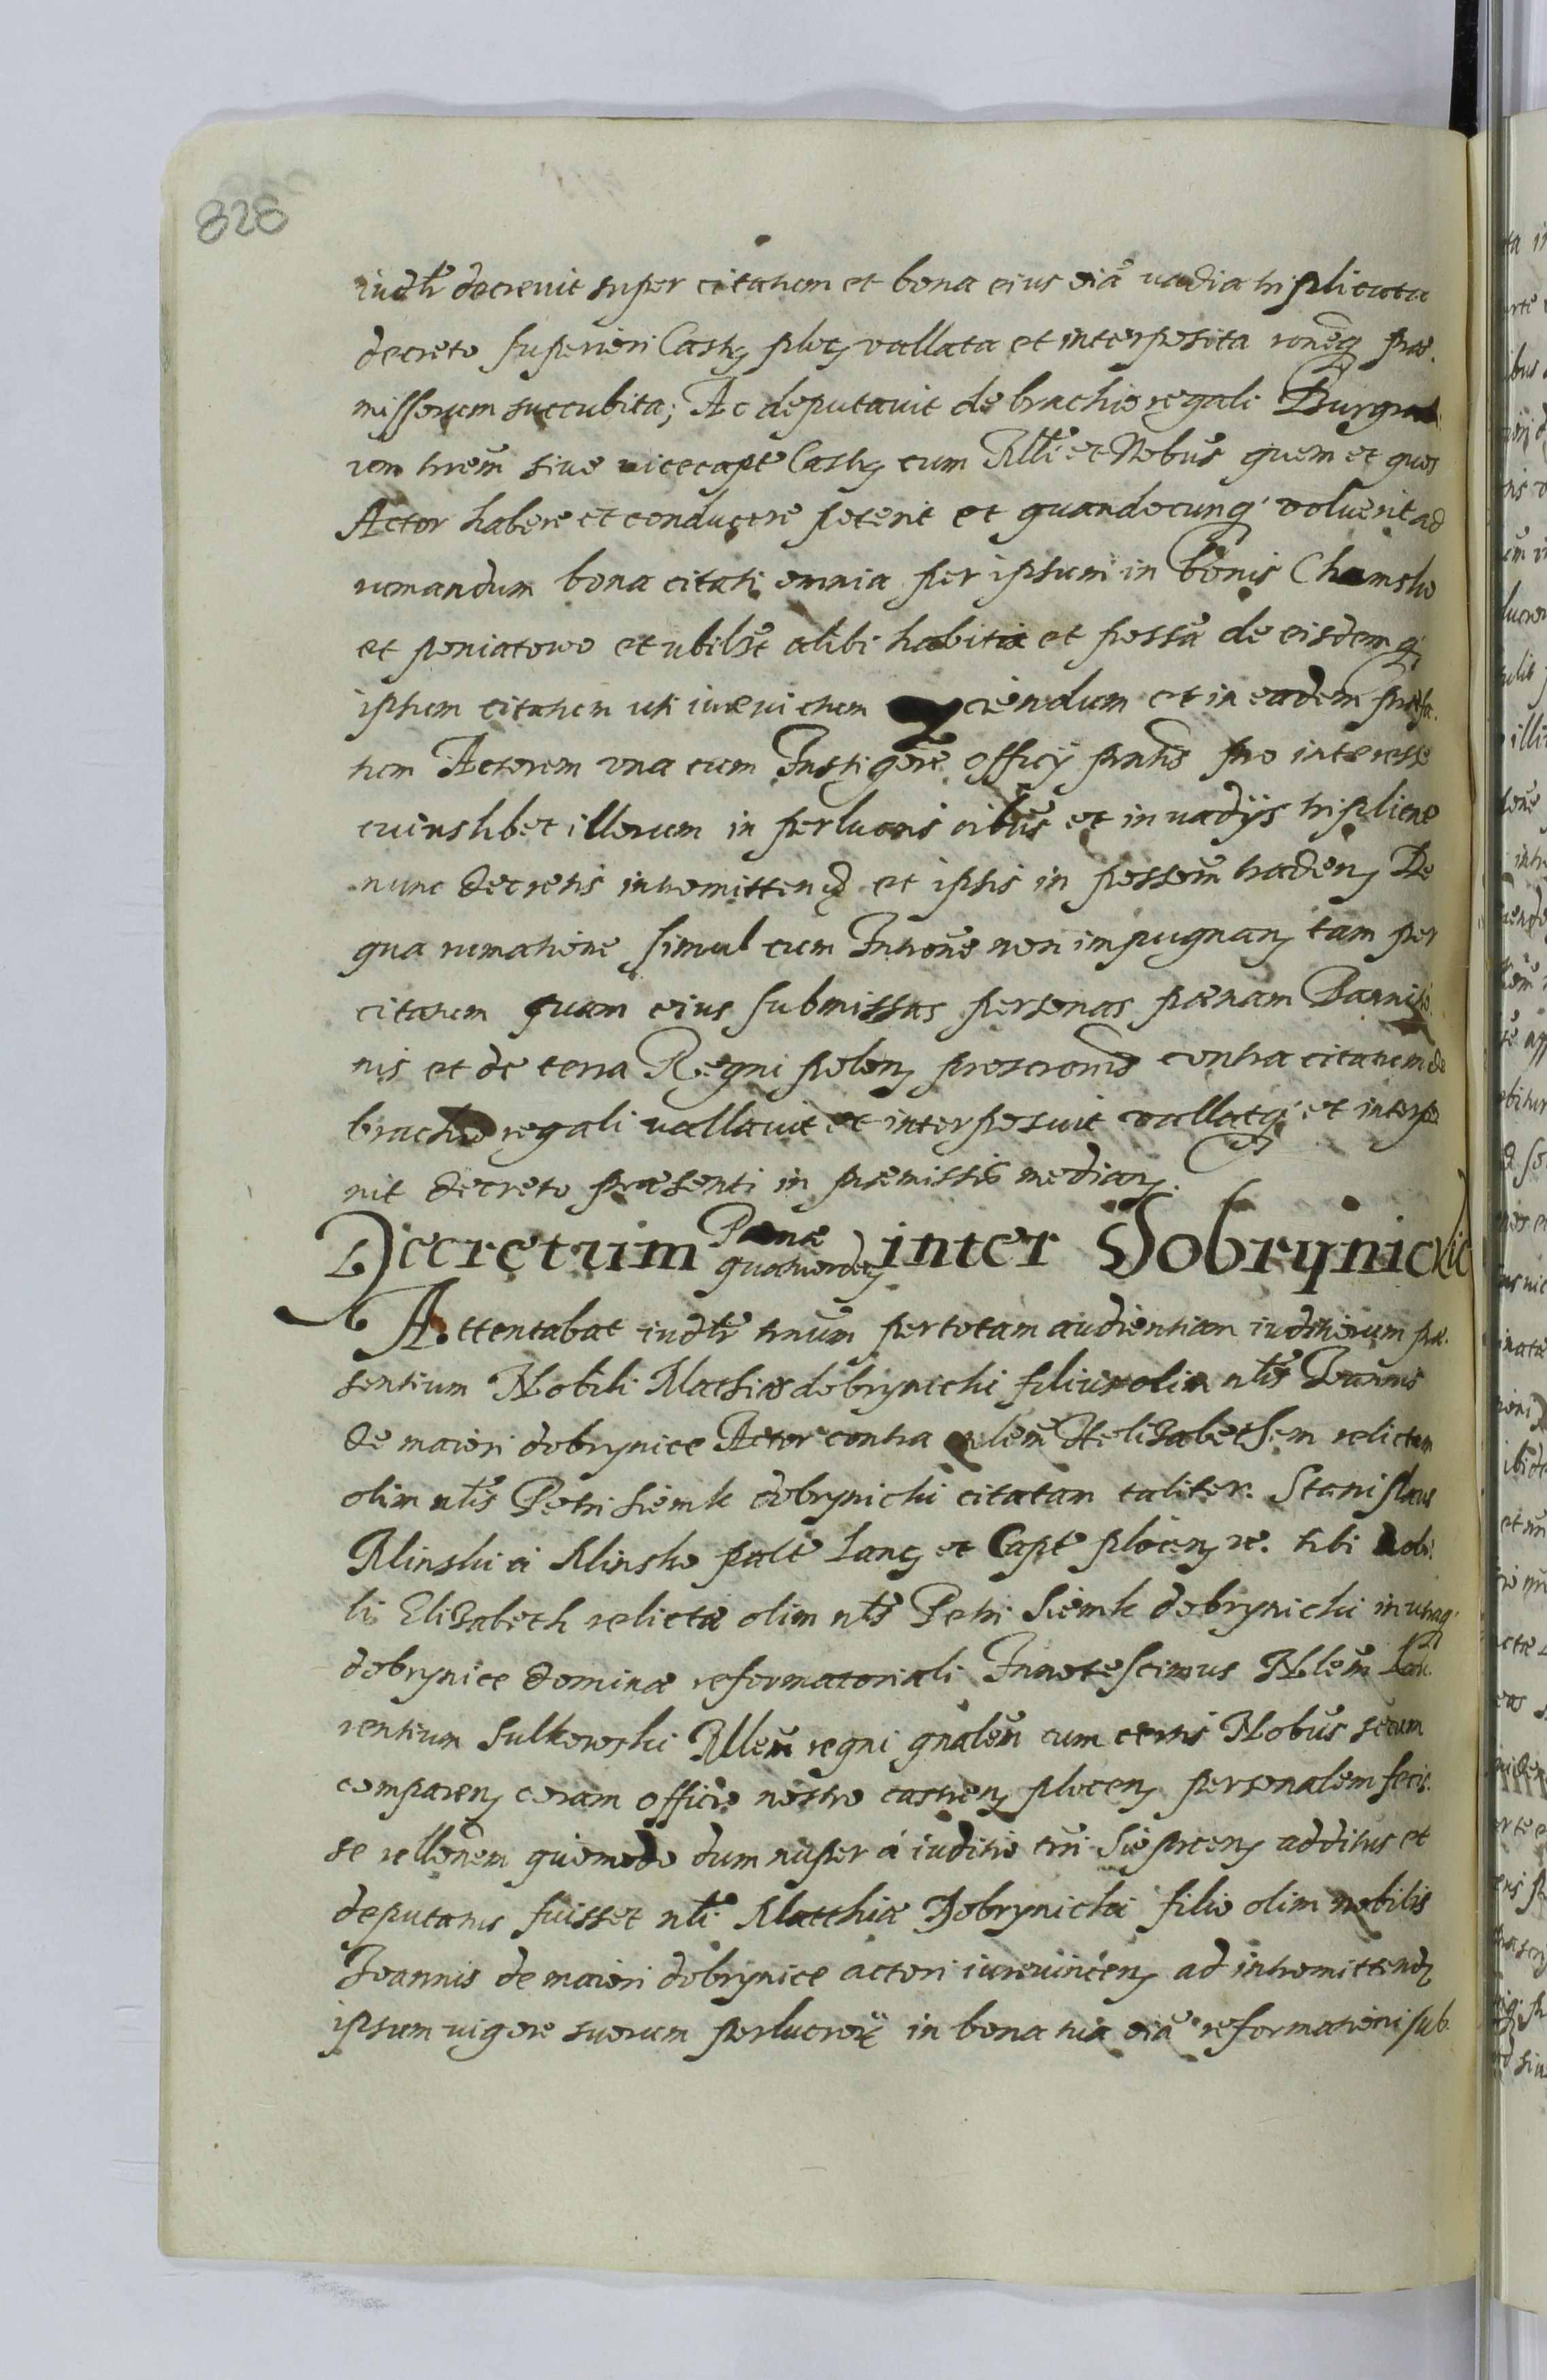 828
iudtr decrevit super citatum et bona eius oiā vadia triplicata
decreto superiori Castrj plocj vallata et interposita ronēq prae-
missorum succubita; Ac deputavit de brachio regali Burgrab-
iren sive vicecaptē Castrj cum Mtli et Nobūs quem et quos
Actor habere et conducere poterit et quandocunq' voluerit ad
rumandum bona citati omnia per ipsum in bonis Chamsko
et poniatowo et ubilbēt alibi habita et possā de eisdemq
ipsum citatum uti iurevictum ciēndum et in eadem praefa-
tum Actorem una cum Instigōre officij pntis pro interesse
cuiuslibet illorum in perlucris oībus et in vadijs triplicae
nunc decretis intromittend et ipsis in possom̄ tradenj De
qua rumatione simul cum Intrōne non impugnanj tam per
citatum quam eius submissas personas paenam Bannitio-
nis et de terra Regni polonj proscronis contra citatum de
brachio regali vallavit et interposuit vallatq' et interpo
nit decreto praesenti in praemissis medianj.
Decretum Paenae quatuordecj inter Dobrzynickie
Attentabat iudtr trnūm per totam audientiam iuditiorum prae-
sentium Nobili Mathias dobrzynichi filius olim nlīs Joannis
de maiori dobrzynice Actor contra nlem̄ Helizabethem relictam
olim nlīs Petri Siemk dobrzynichi citatam taliter. Stanislaus
Minski a Minsko paltē Lancj et Captē plocenj re. tibi Nobi-
li Elizabeth relictae olim nlīs Petri Siemk dobrzynichi in utraq'
dobrzynice dominae reformatoriali Innotescimus Nlem̄ Lau-
rentium Sulkowski Mllem̄ regni gnalem̄ cum certis Nobūs secum
comparenj coram officio nostro castrenj plocenj personalem fecis-
se rellonem quomodo dum nuper a iuditio trrī Sieprcenj additus et
deputatus fuisset nlī Matthiae Dobrzynichi filio olim nobilis
Joannis de maiori dobrzynice actori iurevincenj ad intromittendj
ipsum vigore suorum perlucror in bona tua oiā reformationi sub-